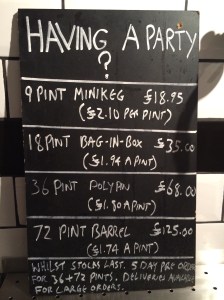 HAVING A PARTY
?
9 PINT MINIKEG £18.95
(£2.10 PER PINT)
18 PINT BAG-IN-BOX £35.00
(£1.94 A PINT)
36 PINT POLYPIN £68.00
(£1.80 A PINT)
72 PINT BARREL £125.00
(£1.74 A PINT)
WHILST STOCKS LAST. 5 DAY PRE ORDER
FOR 36+72 PINTS. DELIVERIES AVAILABLE
FOR LARGE ORDERS.